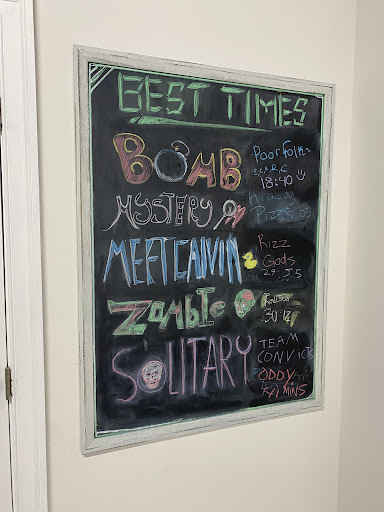 BEST TIMES
BOMB
Poor folks
18:40
MYSTERY
MEET CALVIN
Rizz
Gods
29:55
ZOMBIE
30:12
SOLITARY
TEAM
CONVICTS
ODDY
MINS